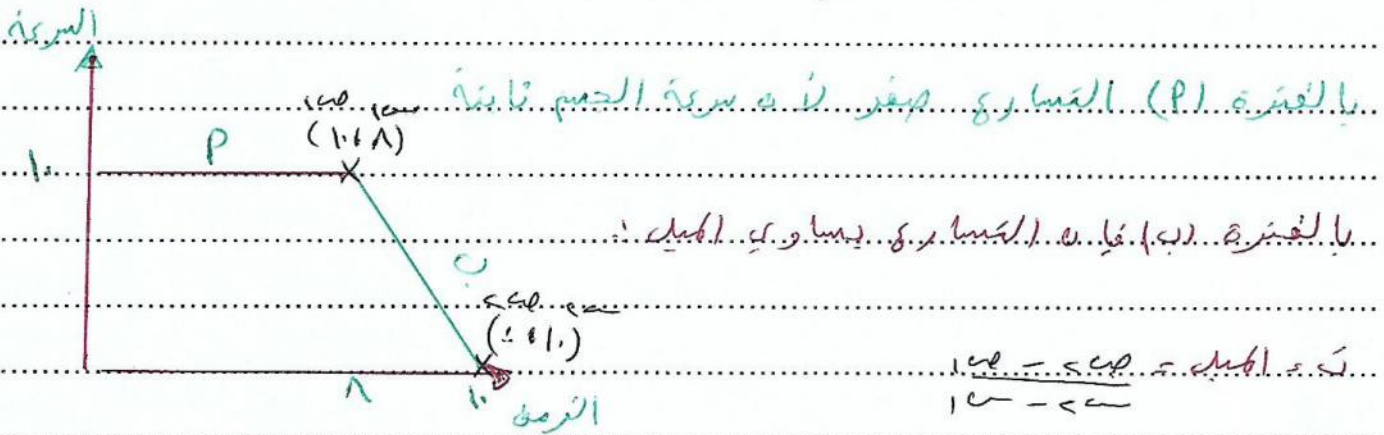 السرعة
بالفترة (أ) التسارع صفر لأن سرعة الجسم ثابتة
س١ ص١
(٨ ، ١٠)
أ
١٠
بالفترة (ب) فإن التسارع يساوي الميل :
ب
س٢ ص٢
(١٠ ، ٠)
ت = الميل = ص٢ - ص١
س٢ - س١
٨ ١٠
الزمن